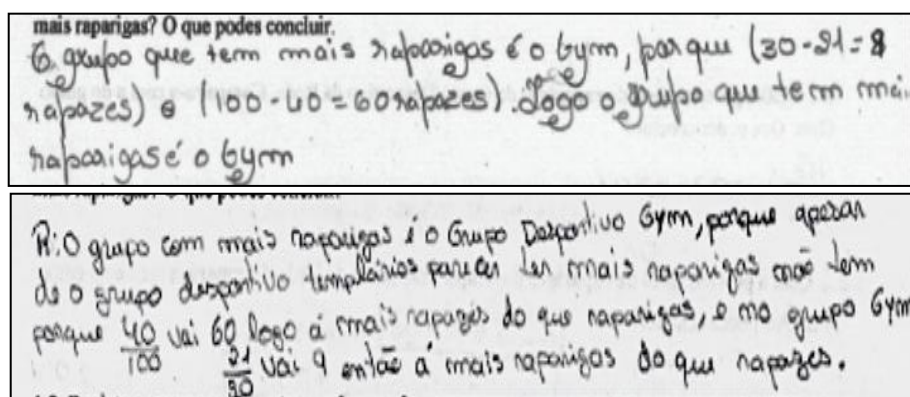 mais raparigas? O que podes concluir.
O grupo que tem mais raparigas é o Gym, porque (30-21=9
rapazes) e (100-40=60 rapazes). Logo o grupo que tem mai
raparigas é o Gym
R: O grupo com mais raparigas é o Grupo Desportivo Gym, porque apesar
de o grupo desportivo templários parecer ter mais raparigas não tem
porque 40/100 vai 60 logo á mais rapazes do que raparigas, e no grupo Gym
21/30 vai 9 então á mais raparigas do que rapazes.